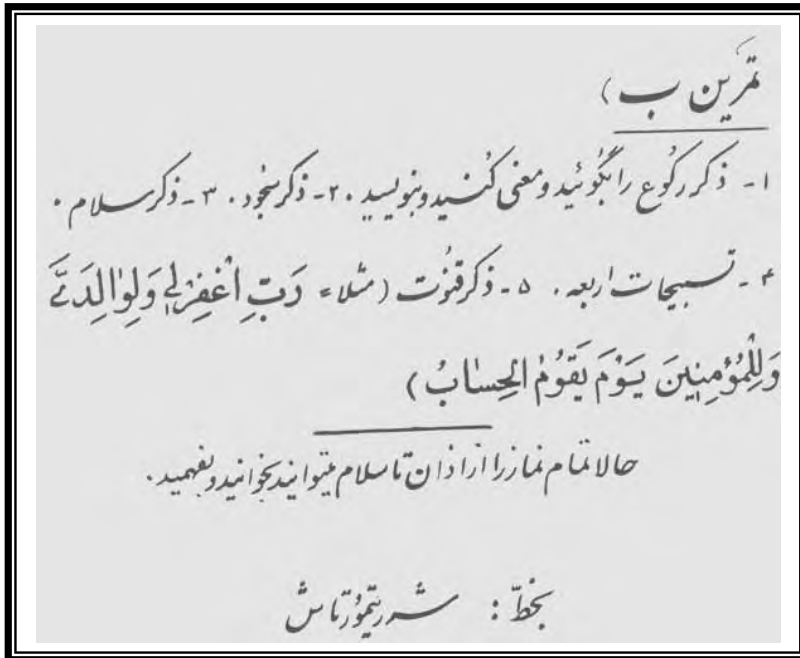 تمرین ب)
۱- ذکر رکُوع را بگوئید و معنی کُنید و بنویسید. ۲- ذکر سجُود. ۳- ذکر سلام.
۴- تسبیحات اربعه. ۵- ذکر قنُوت (مثلا= رَبِّ اغْفِرْلی وَلِوٰالِدَیَّ
وَلِلْمُؤمِنینَ یَوْمَ یَقُومُ الحِسٰابُ)
حالا تمام نماز را از اذان تا سلام میتوانید بخوانید و بفهمید.
بخطّ :